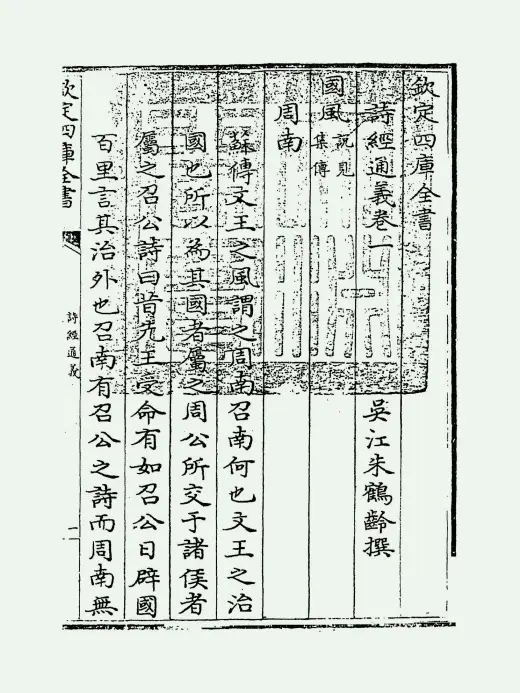 欽定四庫全書
詩經通義卷一
吳江朱鶴齡撰
國風說見集傳
周南
蘇傳文王之風謂之周南召南何也文王之治
國也所以為其國者屬之周公所交于諸侯者
屬之召公詩曰昔先王受命有如召公日辟國
百里言其治外也召南有召公之詩而周南無
欽定四庫全書
詩經通義
一